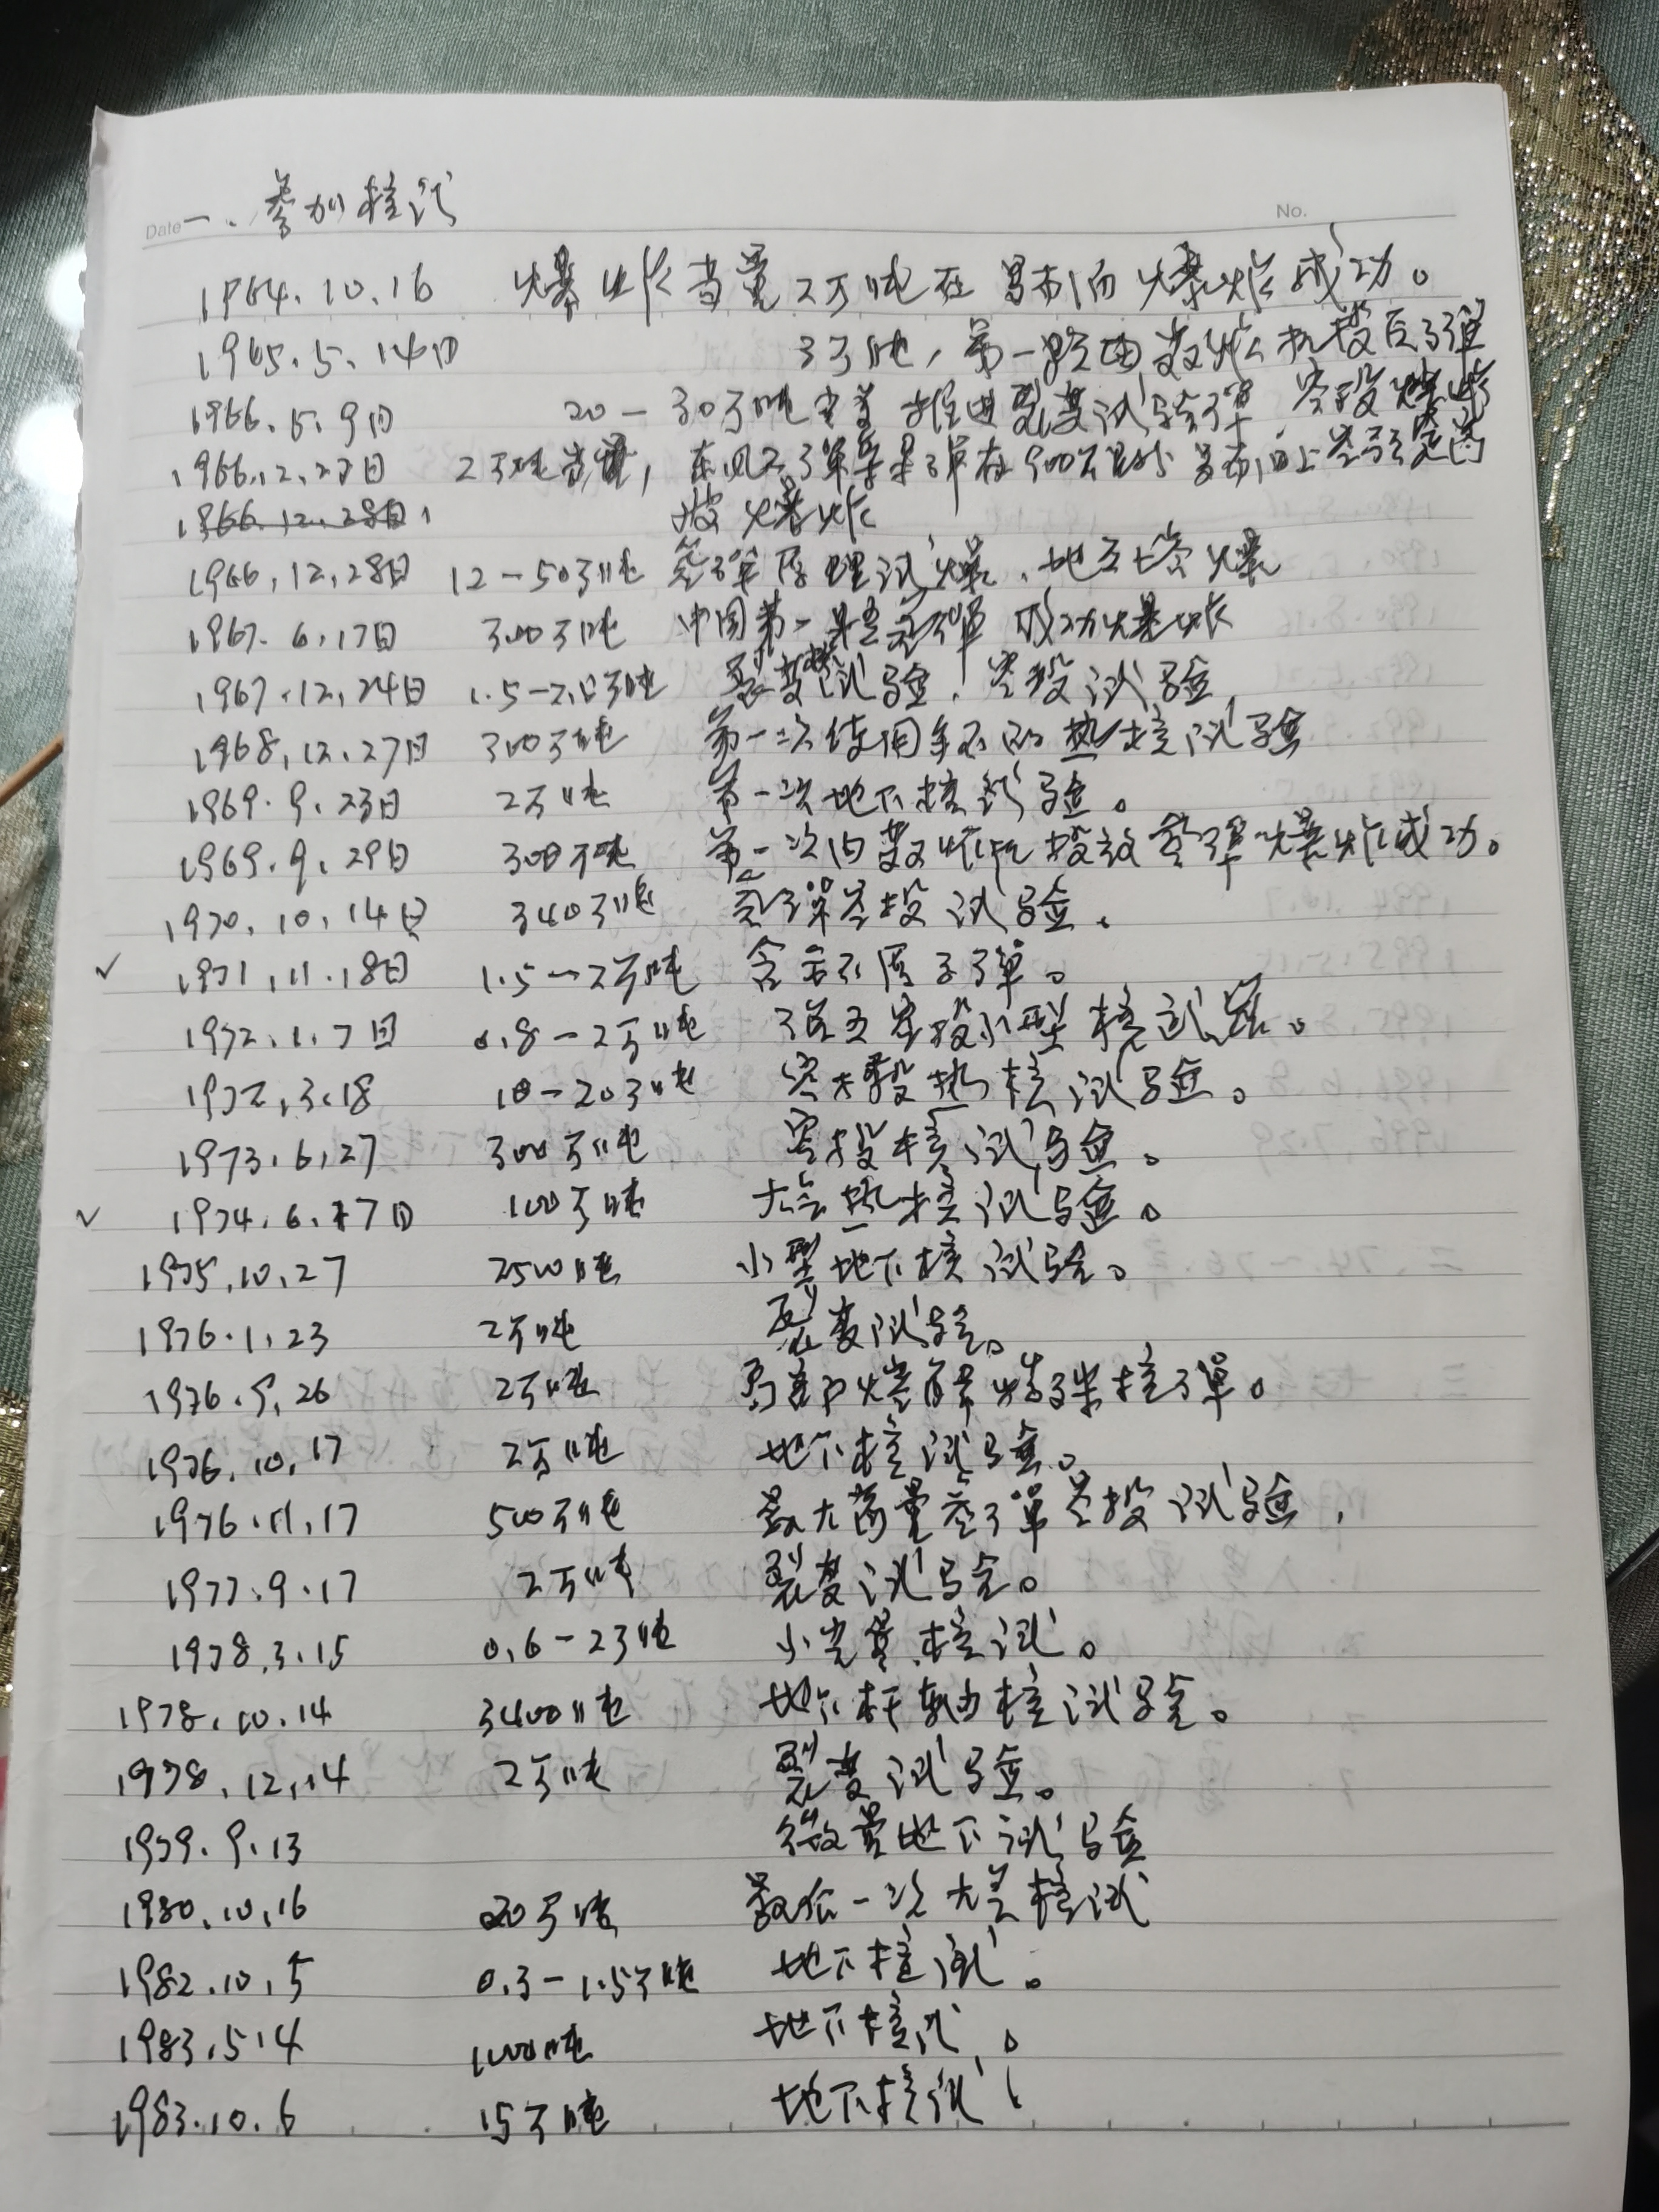 Date 一、参加核试
No.
1964.10.16 爆炸当量2万吨在罗布泊爆炸成功。
1965.5.14日 3万吨,第一颗由轰炸机投原子弹
1966.5.9日 20-30万吨当量 推进裂变试验弹,空投爆炸
1966.12.27日 2万吨当量,东风二导弹 弹在900公里外罗布泊上空预定高
1966.12.28日,
度爆炸
1966,12,28日 12-50万吨 氢弹原理试爆,地面上空爆
1967.6.17日 300万吨 中国第一颗氢弹成功爆炸
1967.12,24日 1.5-2.0万吨 裂变试验,空投试验
1968,12.27日 300万吨 第一次使用钚的热核试验
1969.9.23日 2万吨 第一次地下核试验。
1969.9.29日 300万吨 第一次由轰炸机投放氢弹爆炸成功。
1970.10,14日 340万吨 氢弹空投试验.
✓ 1971,11.18日 1.5-2万吨 含钚原子弹。
1972.1.7日 0.8-2万吨 强五空投小型核试验。
1972,3.18 10-20万吨 空投热核试验。
1973.6,27 300万吨 空投核试验。
✓ 1974.6.17日 100万吨 大气热核试验。
1975,10,27 2500吨 小型地下核试验。
1976.1,23 2万吨 裂变试验。
1976.9,26 2万吨 特殊核弹。
1976,10,17 2万吨 地下核试验。
1976.11,17 500万吨 最大当量氢弹空投试验,
1977.9.17 2万吨 裂变试验。
1978.3.15 0.6-2万吨 小当量核试。
1978,10.14 3400吨 地下杆轴核试验。
1978,12,14 2万吨 裂变试验。
1979.9.13 微量地下试验
1980,10,16 20万吨 最后一次大气核试
1982.10,5 0.3-1.5万吨 地下核试。
1983,5,4 1000吨 地下核试。
1983.10.6 15万吨 地下核试!